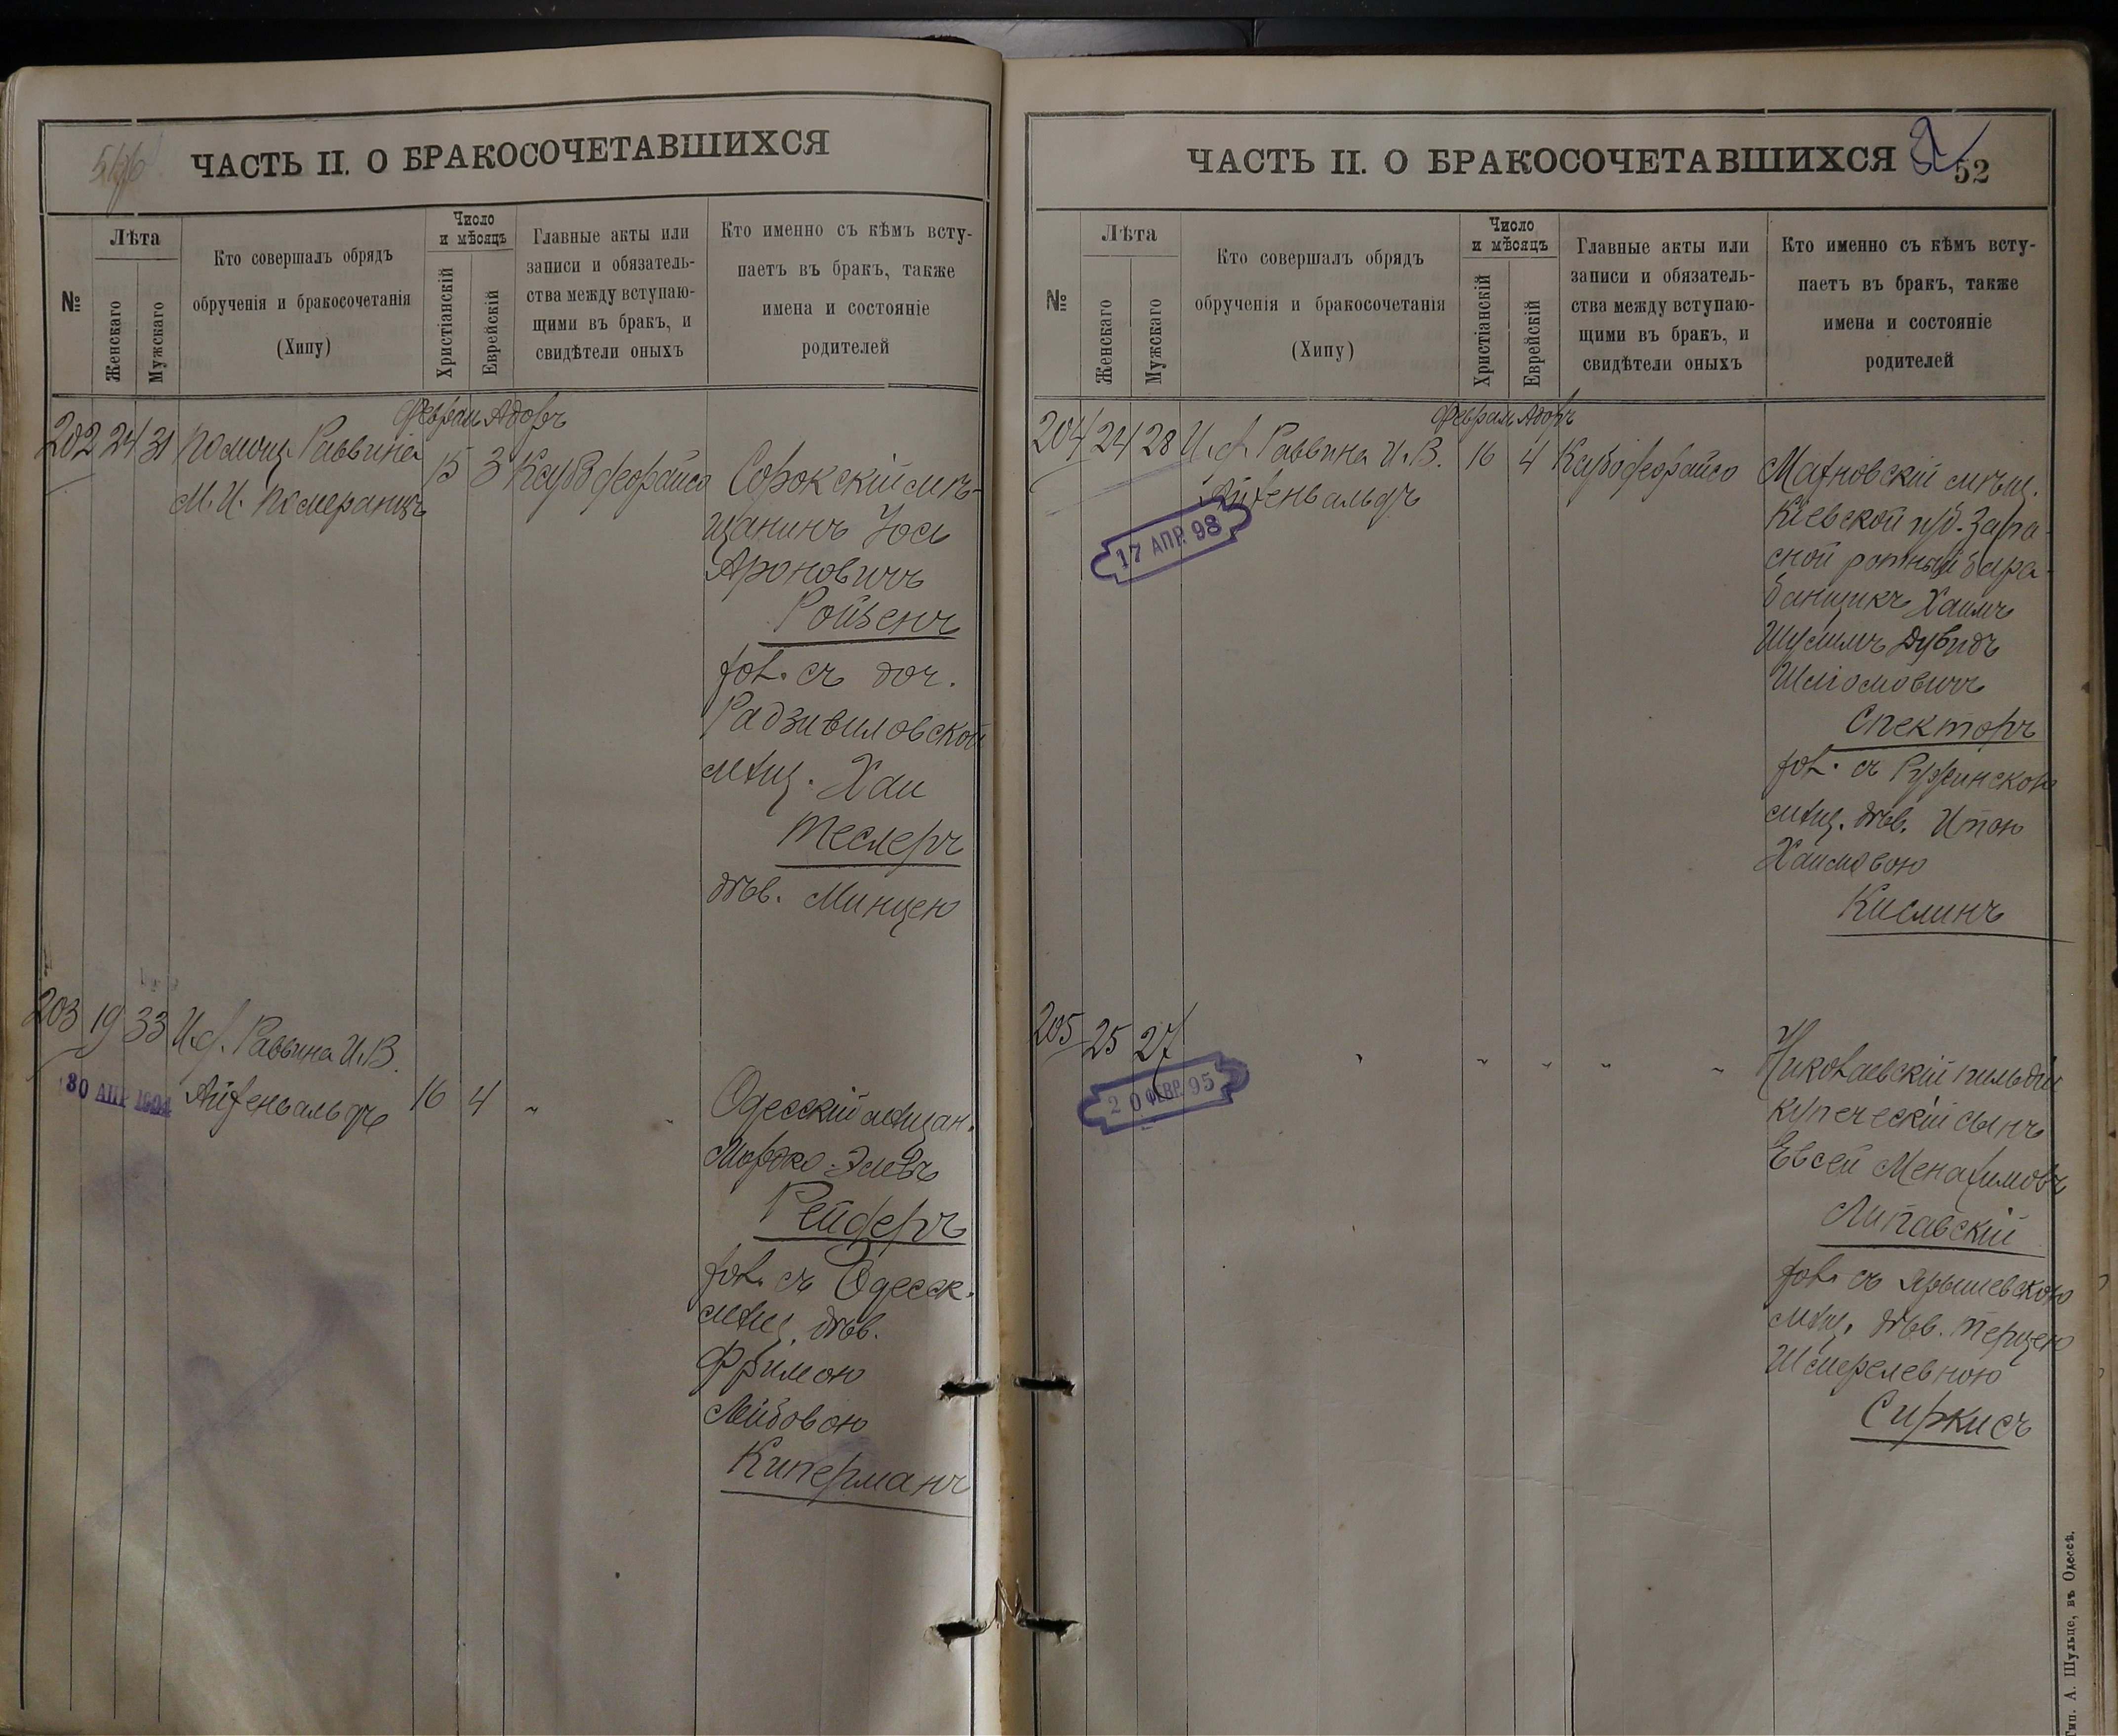 ЧАСТЬ II. О БРАКОСОЧЕТАВШИХСЯ
№
Лѣта
Женскаго
Мужскаго
Кто совершалъ обрядъ
обрученія и бракосочетанія
(Хипу)
Число
и мѣсяцъ
Христіанскій
Еврейскій
Главные акты или
записи и обязатель-
ства между вступаю-
щими въ бракъ, и
свидѣтели оныхъ
Кто именно съ кѣмъ всту-
паетъ въ бракъ, также
имена и состояніе
родителей
Феврал Адоръ
202 24 31 Помощ. Раввина
М. И. Померанцъ
15 3
Сорокскій мѣ-
щанинъ Іось
Ароновичъ
Ройзенъ
хол. съ доч.
Радзивиловской
мѣщ. Хаи
Теслеръ
дѣв. Минцею
203 19 33 И.д. Раввина И.В.
Айхенвальдъ
16 4 "
30 АПР
Одесскій мѣщан.
Мордко Элевъ
Рейдеръ
хол. съ Одесск.
мѣщ. дѣв.
Фримою
Лейбовою
Киперманъ
ЧАСТЬ II. О БРАКОСОЧЕТАВШИХСЯ
52
№
Лѣта
Женскаго
Мужскаго
Кто совершалъ обрядъ
обрученія и бракосочетанія
(Хипу)
Число
и мѣсяцъ
Христіанскій
Еврейскій
Главные акты или
записи и обязатель-
ства между вступаю-
щими въ бракъ, и
свидѣтели оныхъ
Кто именно съ кѣмъ всту-
паетъ въ бракъ, также
имена и состояніе
родителей
Феврал Адоръ
204 24 28 И.д. Раввина И.В.
Айхенвальдъ
16 4
17 АПР. 98
Махновскій мѣщ.
Кіевской губ. Запа-
сной ротный бара-
банщикъ Хаимъ
Шулимъ Дувидъ
Шліомовичъ
Спекторъ
хол. съ Ружинскою
мѣщ. дѣв. Итою
Хаимовою
Кислинъ
205 25 27
" " " "
20 ФЕВР. 95
Николаевскій гильдій
купеческій сынъ
Евсей Менахимовъ
Липавскій
хол. съ Ярышевскою
мѣщ. дѣв. Перцею
Шмерелевною
Сиркисъ
Тип. А. Шульце, въ Одессѣ.